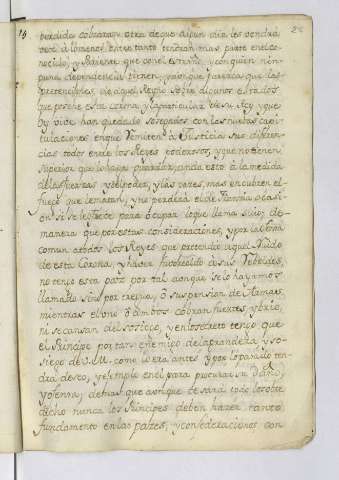 perdida cobraran otra de que algun dia les vendrá
á lo menos entre tanto tendrán mas parte en el co-
nocido, y Pariente que con el estraño, y con quien nin-
guna dependencia tienen; y aunque parezca que las
pretenciones de aquel Reyno sobre algunos estados
que posehe esta corona y la particular de su Rey y que
oy vive han quedado sosegadas con las nuevas capi-
tulaciones en que remiten á Justicia sus diferen-
cias todos entre los Reyes Poderosos, y que no tienen
superior que lo haga guardar, anda esto á la medida
de las fuerzas y del poder, y las pazes, mas encubren el
fuego que le matan, y no perderá el de Francia ocasi-
on si se le ofrece para ocupar lo que llama suio; de
manera que por estas consideraciones, y por la
comun á todos los Reyes que pretende aquel
de esta Corona, y haver favorecido á sus Rebeldes,
no tengo esta paz por tal aunque se lo hayamos
llamado sino por tregua, ó suspension de Armas,
mientras el uno ó ambos cobran fuerzas, y brio,
ni se cansan del sosiego, y en lo secreto tengo que
el Principe por tan enemigo de la grandeza y so-
siego de V.M. como lo era antes y por lo pasado ten-
drá deseo, y exemplo en el para procurar su daño,
y ofensa; demas que aunque cesara todo lo sobre
dicho nunca los Principes deben hazer tanto
fundamento en las pazes, y confederaciones con